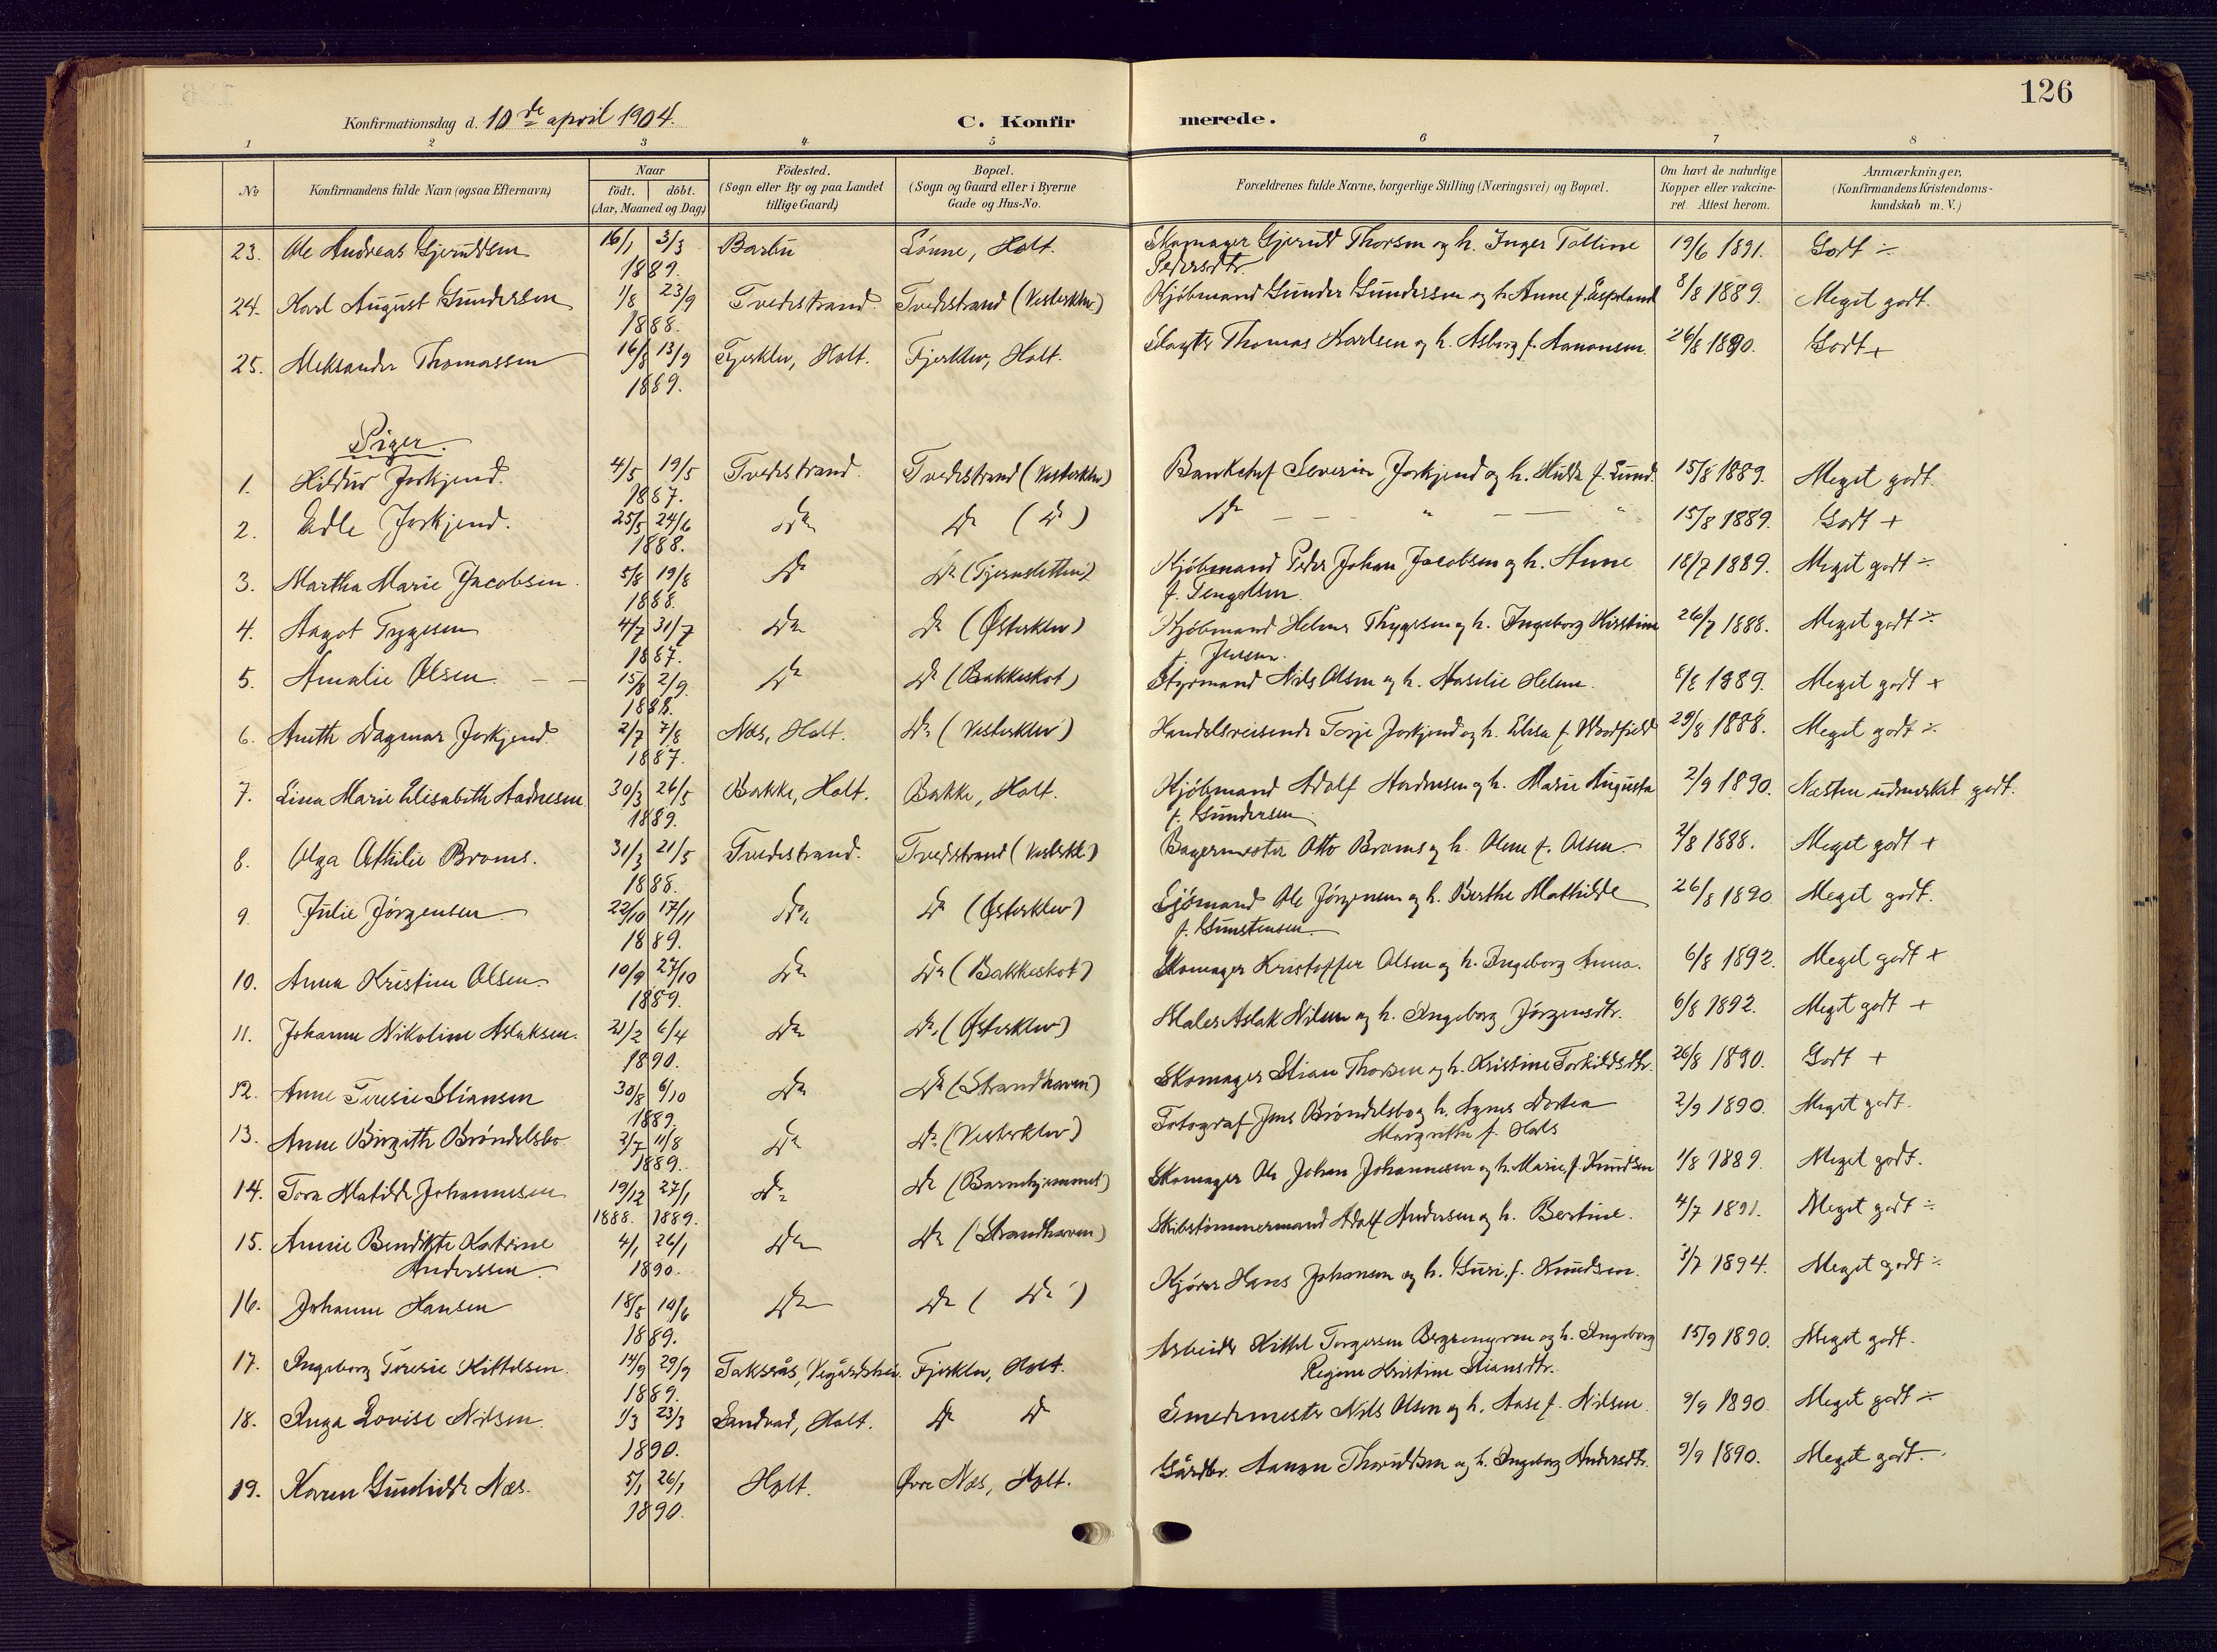 126
Konfirmationsdag d. 10de april 1904.
C. Konfirmerede.
1 2 3 4 5 6 7 8
No Konfirmandens fulde Navn (ogsaa Efternavn) Naar födt. döbt. (Aar, Maaned og Dag) Födested. (Sogn eller By og paa Landet tillige Gaard) Bopæl. (Sogn og Gaard eller i Byerne Gade og Hus-No. Forældrenes fulde Navne, borgerlige Stilling (Næringsvei) og Bopæl. Om havt de naturlige Kopper eller vakcineret. Attest herom. Anmærkninger. (Konfirmandens Kristendomskundskab m. V.)
23. Ole Andreas Gjeruldsen 16/1 3/3 1889. Barbu Lónne, Holt. Skomager Gjeruld Thorsen og h. Inger Talline Pedersdtr. 19/6 1891. Godt ÷
24. Karl August Gundersen 1/8 23/9 1888. Tvedestrand. Tvedestrand (Vesterklev) Kjöbmand Gunder Gundersen og h. Anne f. Espeland 8/8 1889. Meget godt.
25. Aleksander Thomassen 16/8 13/9 1889. Fjerklev, Holt. Fjerklev, Holt. Slagter Thomas Karlsen og h. Asborg f. Aanonsen. 26/8 1890. Godt +
Piger.
1. Hildur Jorkjend. 4/5 19/5 1887. Tvedestrand. Tvedestrand (Vesterklev) Bankchef Severin Jorkjend og h. Hulda f. Lund. 15/8 1889. Meget godt.
2. Edle Jorkjend. 25/5 24/6 1888. Do Do (Do) Do — — " — " 15/8 1889. Godt +
3. Martha Marie Jacobsen. 5/8 19/8 1888. Do Do (Tjernsletten) Kjöbmand Peder Johan Jacobsen og h. Anne f. Tengelsen. 18/7 1889. Meget godt ÷
4. Aagot Tygesen 4/7 31/7 1887. Do Do (Österklev) Kjöbmand Helmer Thygesen og h. Ingeborg Kirstine f. Jensen. 26/7 1888. Meget godt ÷
5. Amalie Olsen — — 15/8 2/9. 1888. Do Do (Bakkeskot) Styrmand Nils Olsen og h. Helene. 8/8 1889. Meget godt +
6. Aneth Dagmar Jorkjend. 2/7 7/8 1887. Næs, Holt. Do (Vesterklev) Handelsreisende Torje Jorkjend og h. Elisa f. Woodfield 29/8 1888. Meget godt ÷
7. Lina Marie Elisabeth Aadnesen 30/3 26/5 1889. Bakke, Holt. Bakke, Holt. Kjöbmand Adolf Aadnesen og h. Marie Augusta f. Gundersen 2/9 1890. Næsten udmærket godt.
8. Olga Othilie Broms. 31/3 21/5 1888. Tvedestrand. Tvedestrand (Vesterkl.) Bagermester Otto Broms og h. Olene f. Olsen. 2/8 1888. Meget godt +
9. Julie Jörgensen 22/10 17/11 1889. Do Do (Österklev) Sjömand Ole Jörgensen og h. Berthe Mathilde f. Gunstensen 26/8 1890. Meget godt.
10. Anna Kristine Olsen 10/9 27/10 1889. Do Do (Bakkeskot) Skomager Kristoffer Olsen og h. Ingeborg Anna. 6/8 1892. Meget godt +
11. Johanne Nikoline Aslaksen. 21/2 6/4 1890. Do Do, (Österklev) Maler Aslak Nilsen og h. Ingeborg Jörgensdtr. 6/8 1892. Meget godt +
12. Anne Teresie Stiansen 30/8 6/10 1889. Do Do (Strandhaven) Skomager Stian Thorsen og h. Kristine Torkildsdtr. 26/8 1890. Godt +
13. Anne Birgith Bröndelsbo 2/7 11/8 1889. Do Do (Vesterklev) Fotograf Jens Bröndelsbo og h. Agnes Dortea Margrethe f. Hals 2/9 1890. Meget godt.
14. Tora Matilde Johannesen 19/12 27/1 1888. 1889. Do Do (Barnehjemmet) Skomager Ole Johan Johannesen og h. Marie, f. Knudsen 1/8 1889. Meget godt.
15. Annie Bendikte Katrine Anderssen. 4/1 26/1 1890. Do Do (Strandhaven) Skibstömmermand Adolf Andersen og h. Bertine. 4/7 1891. Meget godt ÷
16. Johanne Hansen 18/5 10/6 1889. Do Do (Do) Kjörer Hans Johansen og h. Guri, f. Knudsen. 3/7 1894. Meget godt ÷
17. Ingeborg Teresie Kittelsen. 14/9 29/9 1889. Taksrås, Vegårdshei. Fjerklev, Holt. Arbeider Kittel Torgersen Bergsmyren og h. Ingeborg Regine Kristine Stiansdtr. 15/9 1890. Meget godt.
18. Inga Lovise Nilsen. 1/3 23/3 1890. Sandvad, Holt. Do Do Smedemester Nils Olsen og h. Aase f. Nilsen. 9/9 1890. Meget godt ÷
19. Karen Gunhilde Næs. 5/1 26/1 1890. Holt. Övre Næs, Holt. Gårdbr. Aanon Thoruldsen og h. Ingeborg Andersdtr. 9/9 1890. Meget godt.